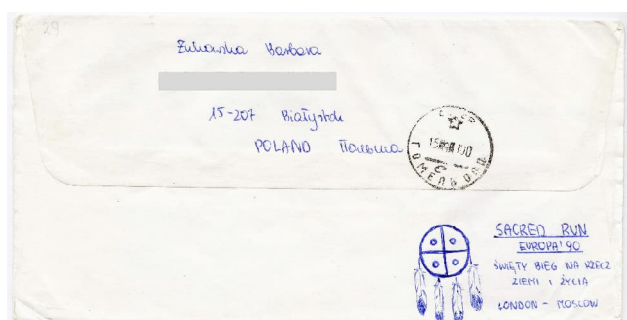 29
Żukowska Barbara
15-207 Białystok
POLAND Польша
СССР
ГОМЕЛЬ
SACRED RUN
EUROPA'90
ŚWIĘTY BIEG NA RZECZ
ZIEMI I ŻYCIA
LONDON - MOSCOW